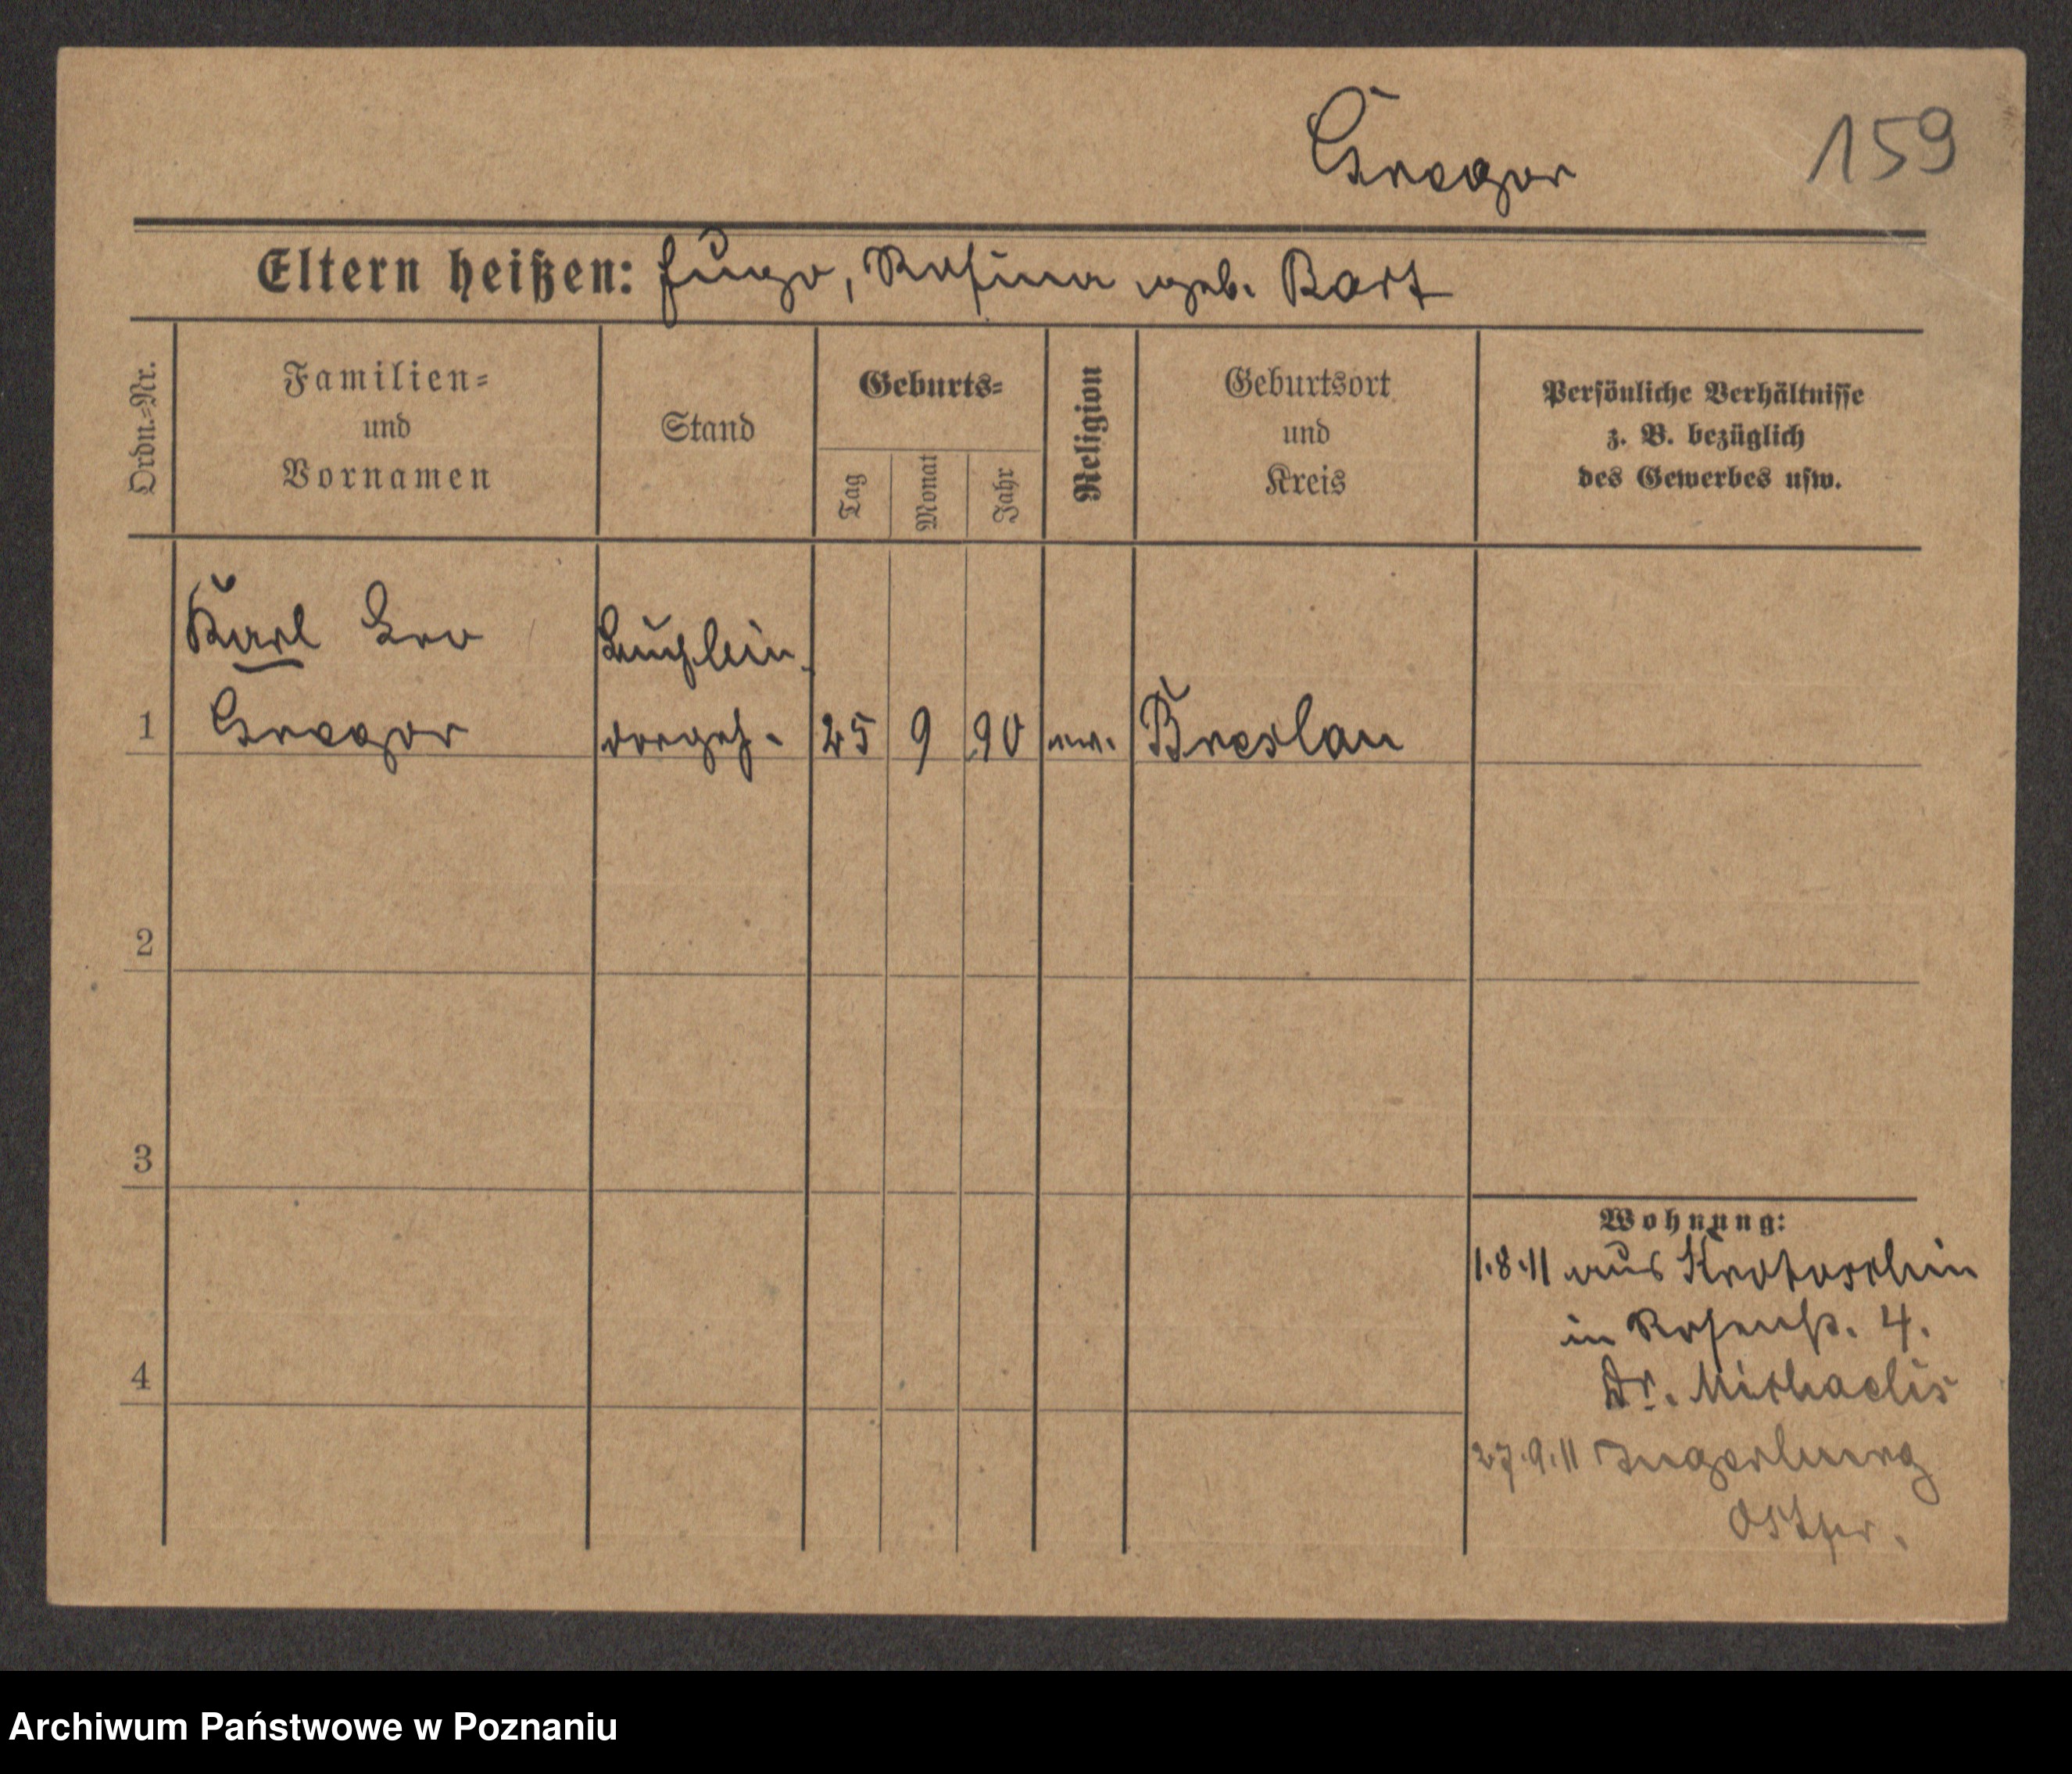 Gregor
159
Eltern heißen: Hugo, Rosina geb. Bart
Ordn.=Nr.
Familien=
und
Vornamen
Stand
Geburts=
Tag
Monat
Jahr
Religion
Geburtsort
und
Kreis
Persönliche Verhältnisse
z. B. bezüglich
des Gewerbes usw.
Karl Leo
Gregor
1
25 9 90 ev. Breslau
2
3
4
Wohnung:
1.8.11 aus Krotoschin
in Rosenstr. 4.
Dr. Michaelis
27.9.11
Archiwum Państwowe w Poznaniu